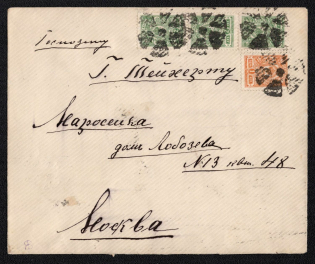 Господину
Г. Тейхерту
Маросейка
домъ Лобозева
№13 кв. 48
Москва